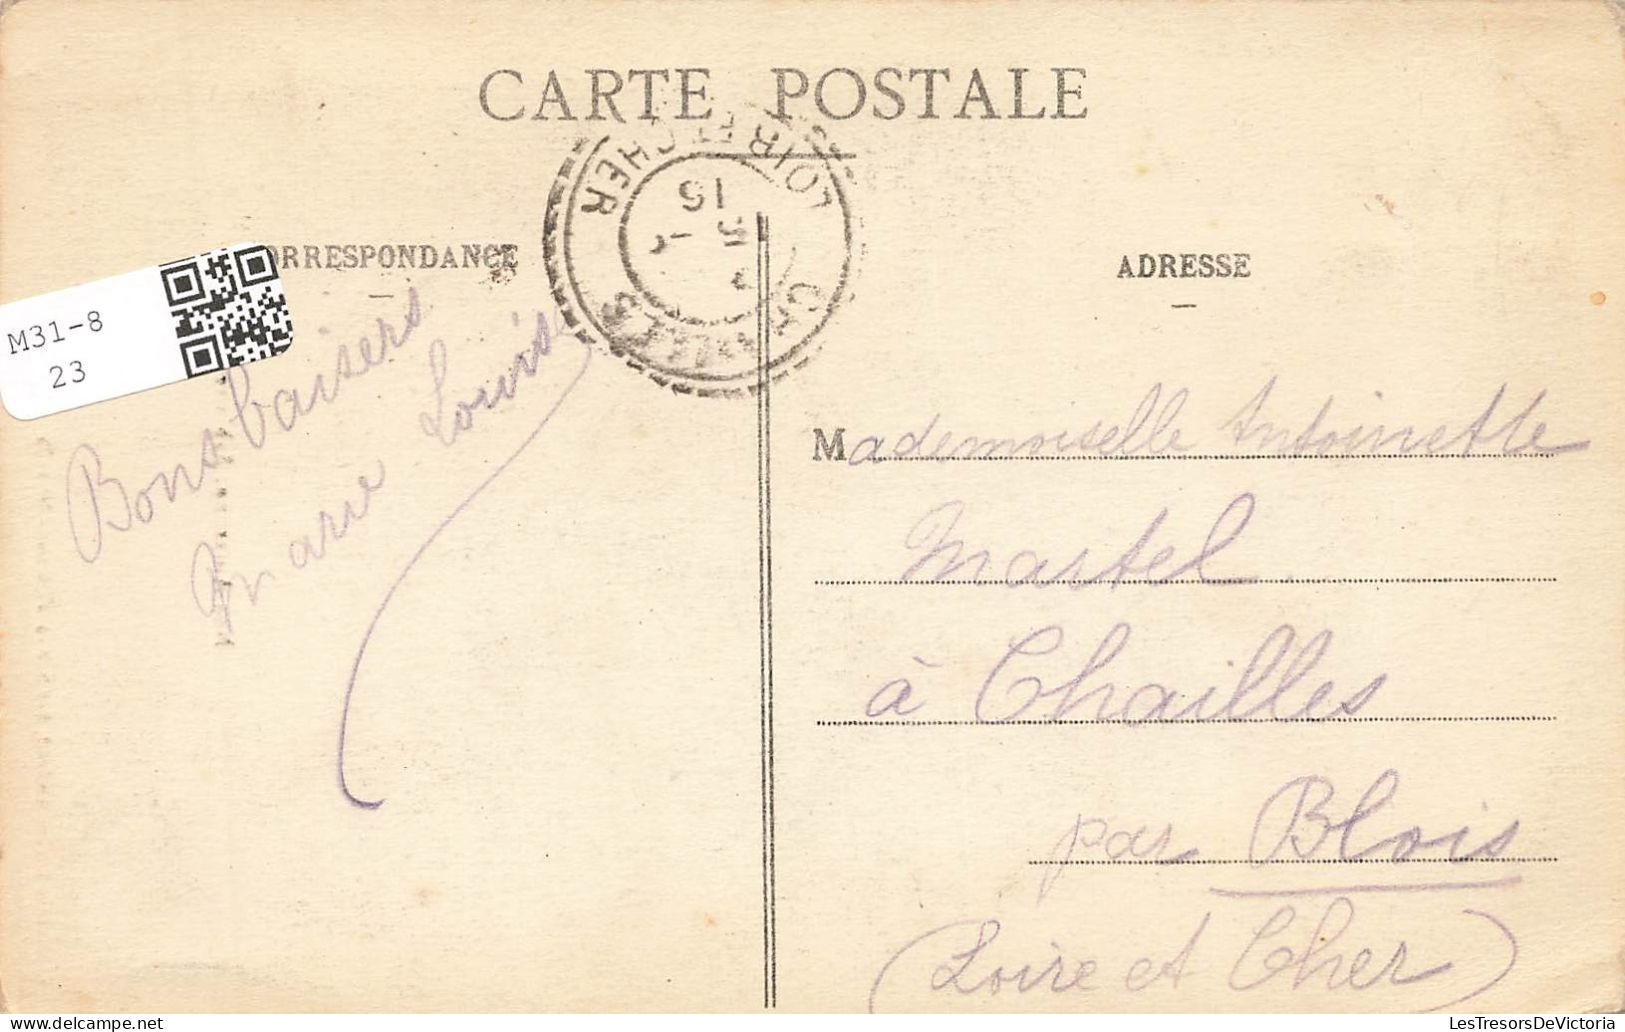 CARTE POSTALE
LOIR-ET-CHER
CHAILLES
CORRESPONDANCE
ADRESSE
M31-8
23
Bons baisers
Marie Louise
Mademoiselle Antoinette
Martel
à Chailles
par Blois
(Loire et Cher)
LesTresorsDeVictoria